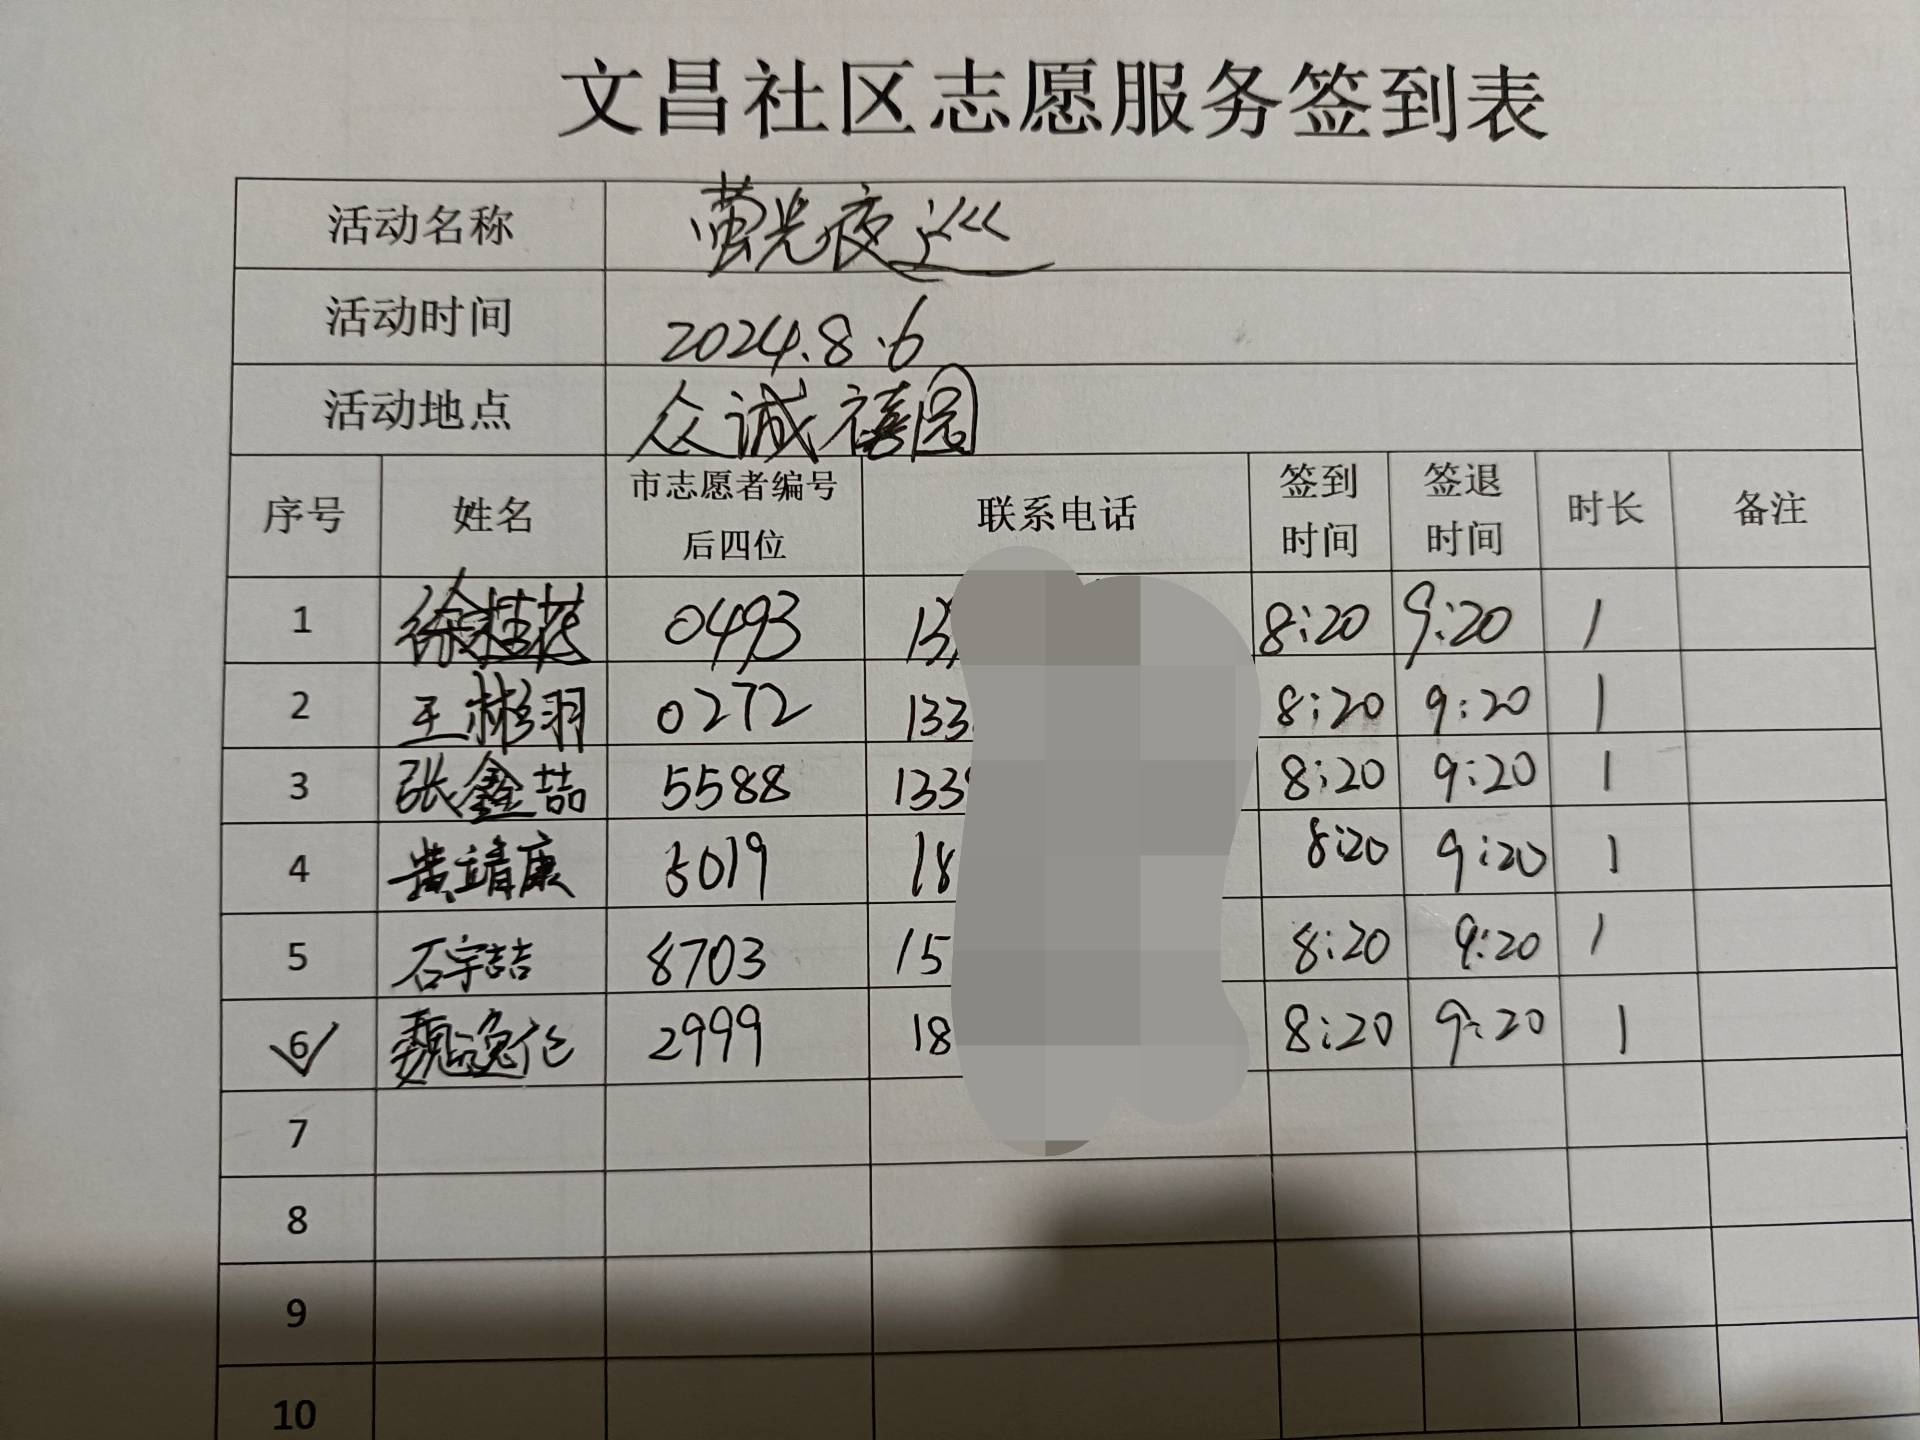 文昌社区志愿服务签到表
活动名称 萤光夜巡
活动时间 2024.8.6
活动地点 众诚禧园
序号 姓名 市志愿者编号后四位 联系电话 签到时间 签退时间 时长 备注
1 徐桂花 0493 13 8:20 9:20 1
2 王彬羽 0272 133 8:20 9:20 1
3 张鑫喆 5588 133 8:20 9:20 1
4 黄靖康 5019 18 8:20 9:20 1
5 石宇喆 8703 15 8:20 9:20 1
6 魏 2999 18 8:20 9:20 1
7
8
9
10